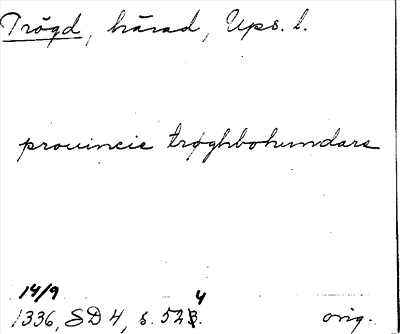 Trögd, härad, Ups. l.
provincie trøghbohundara
14/9
1336, SD 4, s. 524. orig.